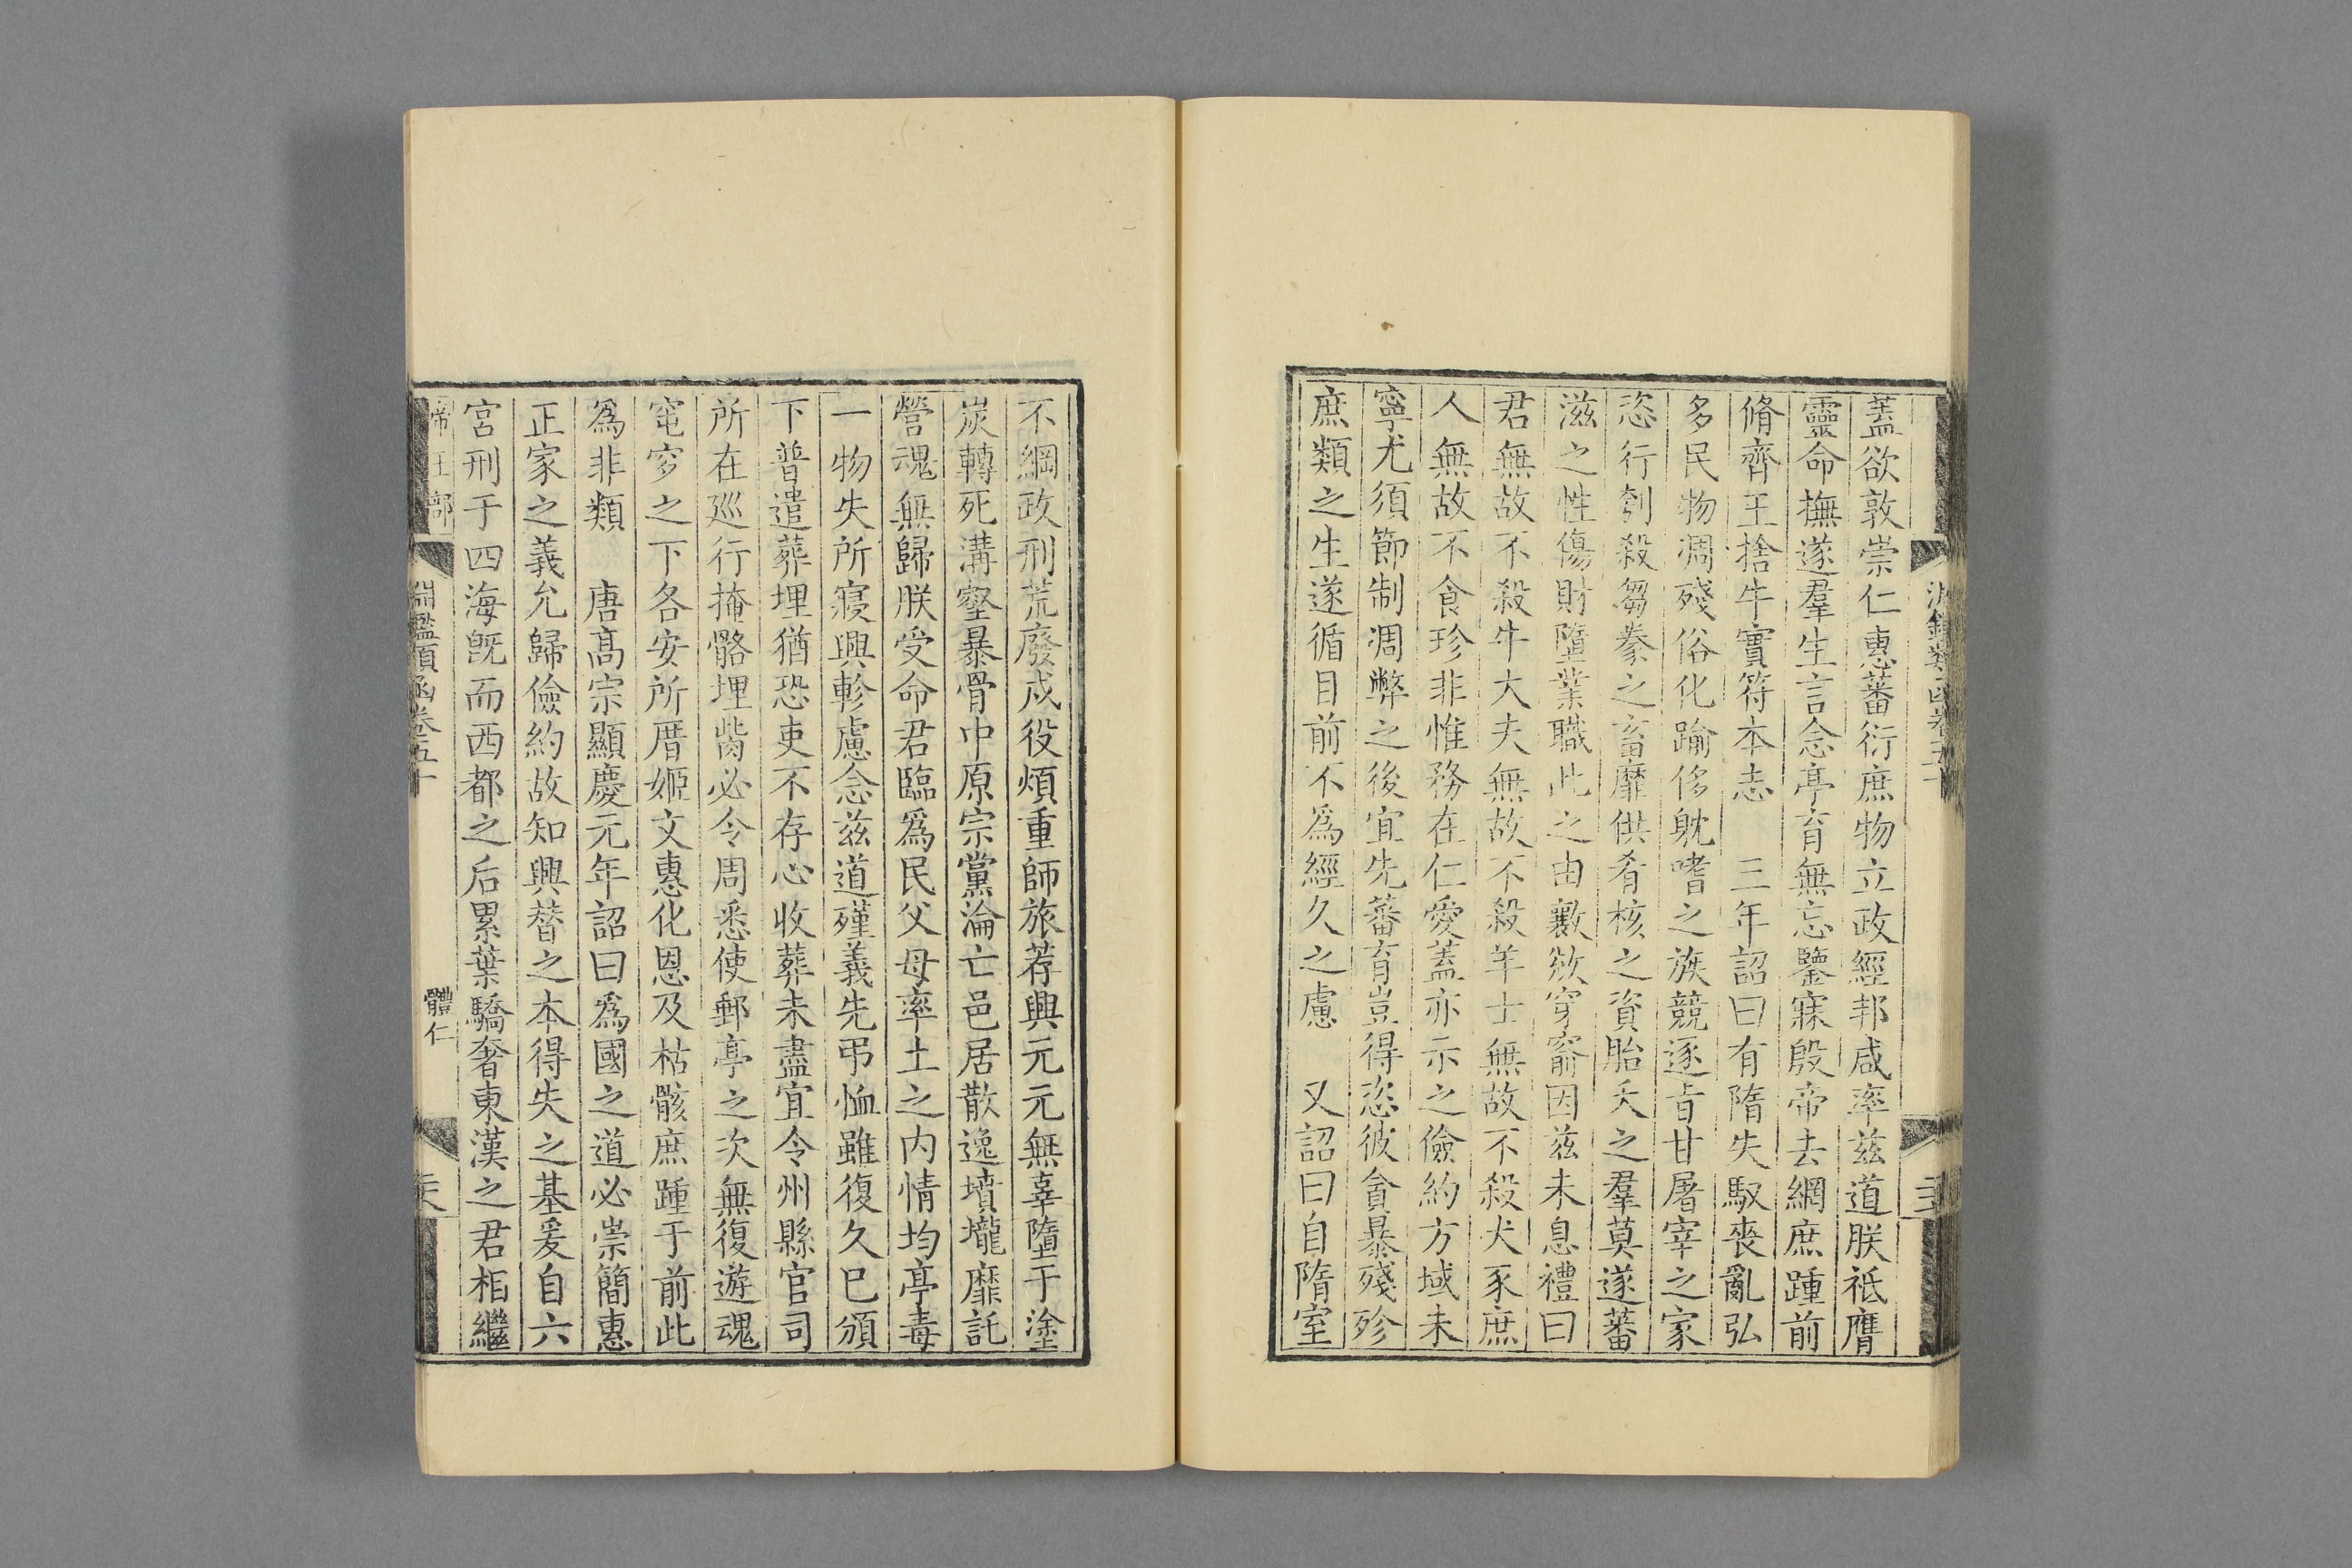 蓋欲敦崇仁惠蕃衍庶物立政經邦咸率兹道朕祗膺
靈命撫遂羣生言念亭育無忘鑒寐殷帝去網庶踵前
脩齊王捨牛實符本志　三年詔曰有隋失馭喪亂弘
多民物凋殘俗化踰侈躭嗜之族競逐旨甘屠宰之家
恣行刳殺芻豢之畜靡供肴核之資胎夭之羣莫遂蕃
滋之性傷財墮業職此之由斁攽穿窬因兹未息禮曰
君無故不殺牛大夫無故不殺羊士無故不殺犬豕庶
人無故不食珍非惟務在仁愛蓋亦示之儉約方域未
寧尤須節制凋弊之後宜先蕃育豈得恣彼貪暴殘殄
庶類之生遂循目前不爲經久之慮　又詔曰自隋室
不綱政刑荒廢戍役煩重師旅荐興元元無辜墮于塗
炭轉死溝壑暴骨中原宗黨淪亡邑居散逸墳壠靡託
營魂無歸朕受命君臨爲民父母率土之内情均亭毒
一物失所寢興軫慮念兹道殣義先弔恤雖復久已頒
下普遣葬埋猶恐吏不存心收葬未盡宜令州縣官司
所在巡行掩骼埋胔必令周悉使郵亭之次無復遊魂
窀穸之下各安所厝姬文惠化恩及枯骸庶踵于前此
爲非類　唐髙宗顯慶元年詔曰爲國之道必崇簡惠
正家之義允歸儉約故知興替之本得失之基爰自六
宮刑于四海旣而西都之后累葉驕奢東漢之君相繼
帝王部
淵鑑類函卷五十
體仁